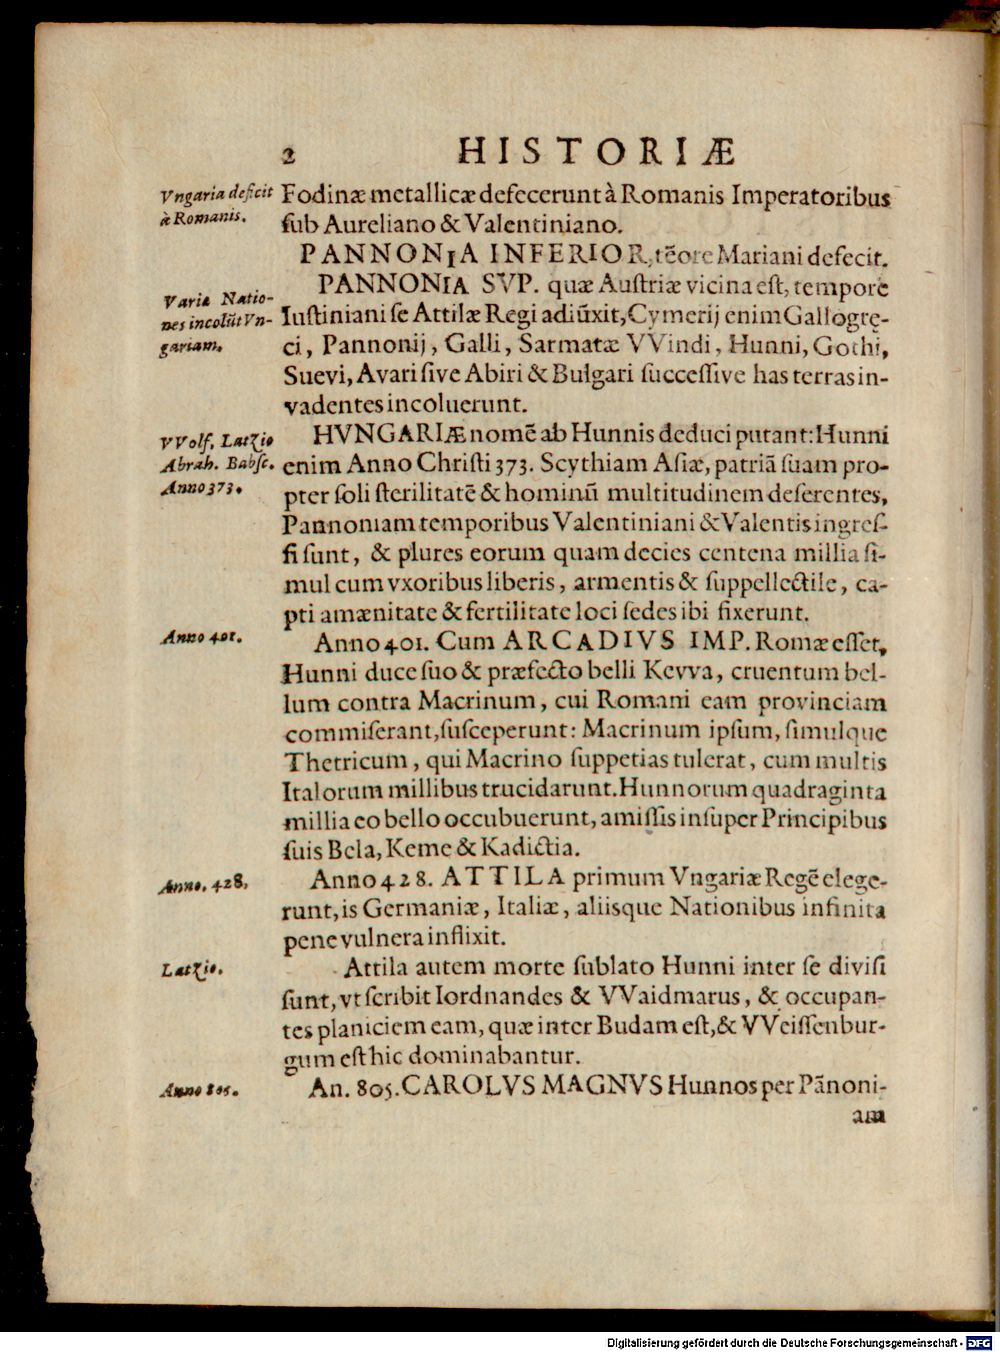 2 HISTORIÆ
Vngaria deficit
à Romanis.
Fodinæ metallicæ defecerunt à Romanis Imperatoribus
ſub Aureliano & Valentiniano.
PANNONIA INFERIOR, tẽore Mariani defecit.
PANNONIA SVP. quæ Auſtriæ vicina eſt, tempore
Variæ Natio-
nes incolũt Vn-
gariam.
Iuſtiniani ſe Attilæ Regi adiũxit, Cymerij enim Gallogrę-
ci, Pannonij, Galli, Sarmatæ VVindi, Hunni, Gothi,
Suevi, Avari ſive Abiri & Bulgari ſucceſſive has terras in-
vadentes incoluerunt.
VVolf. Latzio
Abrah. Babſc.
Anno 373.
HVNGARIÆ nomẽ ab Hunnis deduci putant: Hunni
enim Anno Chriſti 373. Scythiam Aſiæ, patriã ſuam pro-
pter ſoli ſterilitatẽ & hominũ multitudinem deſerentes,
Pannoniam temporibus Valentiniani & Valentis ingreſ-
ſi ſunt, & plures eorum quam decies centena millia ſi-
mul cum vxoribus liberis, armentis & ſuppellectile, ca-
pti amænitate & fertilitate loci ſedes ibi fixerunt.
Anno 401.
Anno 401. Cum ARCADIVS IMP. Romæ eſſet,
Hunni duce ſuo & præfecto belli Kevva, cruentum bel-
lum contra Macrinum, cui Romani eam provinciam
commiſerant, ſuſceperunt: Macrinum ipſum, ſimulque
Thetricum, qui Macrino ſuppetias tulerat, cum multis
Italorum millibus trucidarunt. Hunnorum quadraginta
millia eo bello occubuerunt, amiſſis inſuper Principibus
ſuis Bela, Keme & Kadictia.
Anno. 428,
Anno 428. ATTILA primum Vngariæ Regẽ elege-
runt, is Germaniæ, Italiæ, aliisque Nationibus infinita
pene vulnera inflixit.
Latzio.
Attila autem morte ſublato Hunni inter ſe diviſi
ſunt, vt ſcribit Iordnandes & VVaidmarus, & occupan-
tes planiciem eam, quæ inter Budam eſt, & VVeiſſenbur-
gum eſt hic dominabantur.
Anno 805.
An. 805. CAROLVS MAGNVS Hunnos per Pãnoni-
am
Digitalisierung gefördert durch die Deutsche Forschungsgemeinschaft - DFG